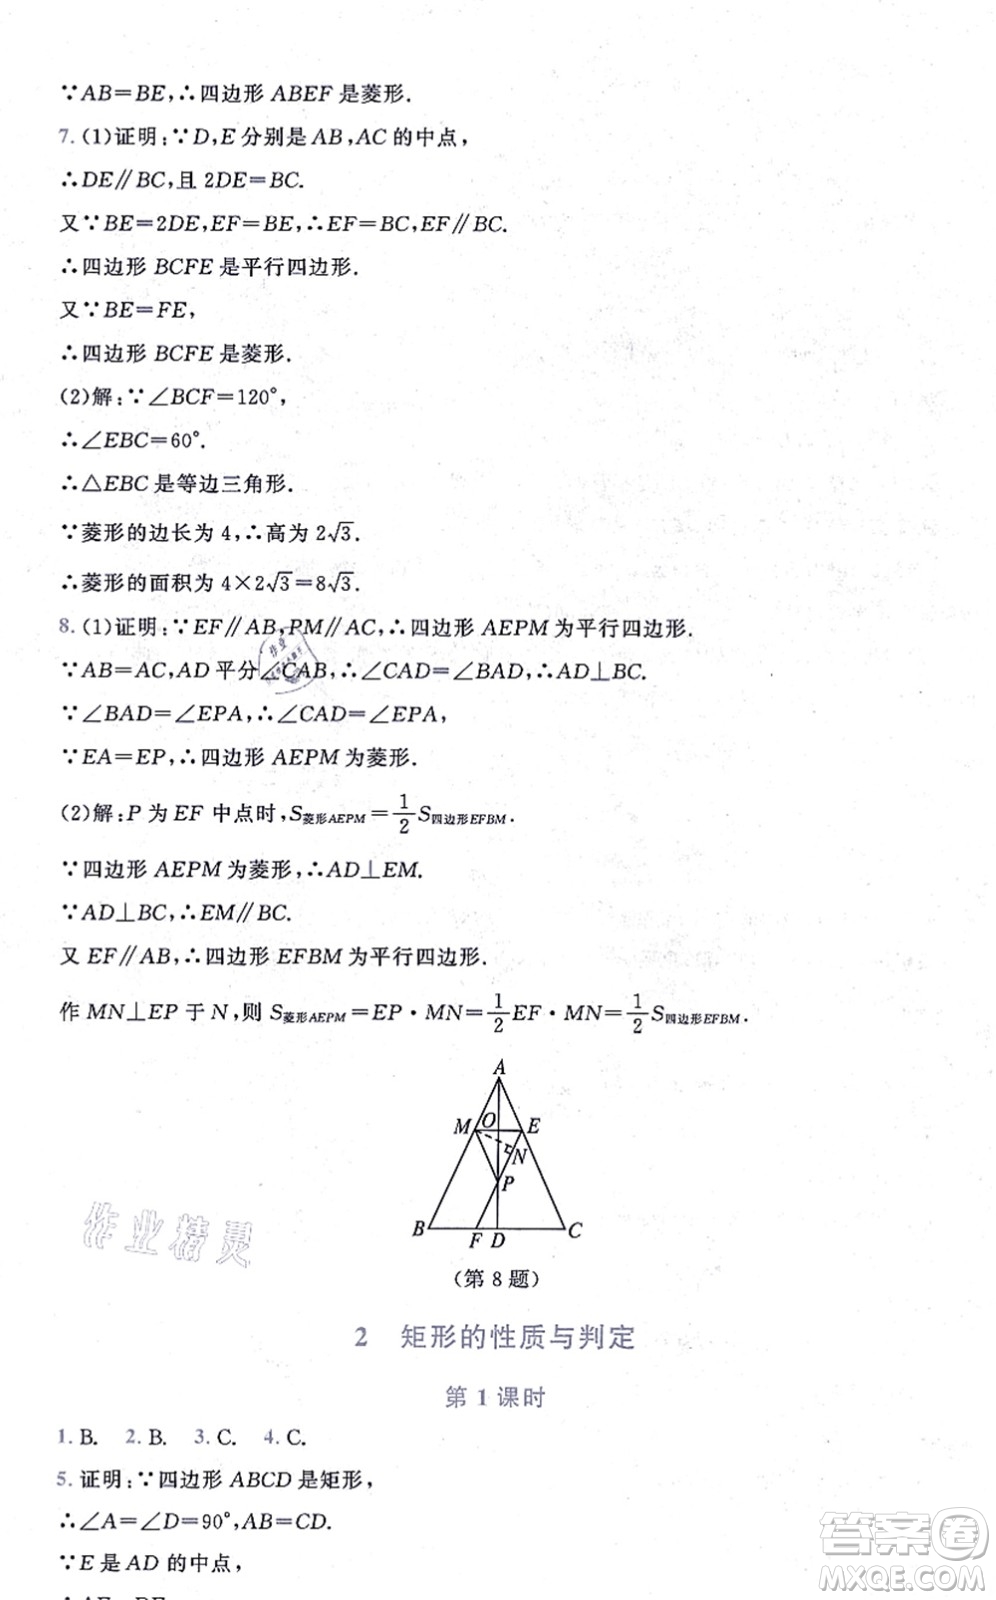 ∵AB=BE,∴四边形 ABEF 是菱形.
7. (1)证明:∵D,E 分别是 AB,AC 的中点,
∴DE∥BC,且 2DE=BC.
又∵BE=2DE,EF=BE,∴EF=BC,EF∥BC.
∴四边形 BCFE 是平行四边形.
又∵BE=FE,
∴四边形 BCFE 是菱形.
(2)解:∵∠BCF=120°,
∴∠EBC=60°.
∴△EBC 是等边三角形.
∵菱形的边长为 4,∴高为 2√3.
∴菱形的面积为 4×2√3=8√3.
8. (1)证明:∵EF∥AB,PM∥AC,∴四边形 AEPM 为平行四边形.
∵AB=AC,AD 平分∠CAB,∴∠CAD=∠BAD,AD⊥BC.
∵∠BAD=∠EPA,∴∠CAD=∠EPA,
∵EA=EP,∴四边形 AEPM 为菱形.
(2)解:P 为 EF 中点时,S菱形AEPM=1/2S四边形EFBM.
∵四边形 AEPM 为菱形,∴AD⊥EM.
∵AD⊥BC,∴EM∥BC.
又 EF∥AB,∴四边形 EFBM 为平行四边形.
作 MN⊥EP 于 N,则 S菱形AEPM=EP·MN=1/2EF·MN=1/2S四边形EFBM.
A
M O E
N
P
B F D C
(第 8 题)
作业精灵
2 矩形的性质与判定
第 1 课时
1. B. 2. B. 3. C. 4. C.
5. 证明:∵四边形 ABCD 是矩形,
∴∠A=∠D=90°,AB=CD.
∵E 是 AD 的中点,
答案卷